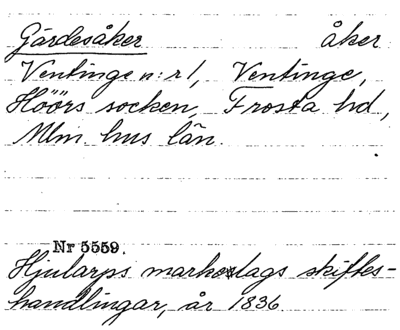 Gärdesåker åker
Ventinge n:r 1, Ventinge,
Höörs socken, Frosta hd,
Mlm hus län.
Nr 5559.
Hjularps markoslags skiftes-
handlingar, år 1836.